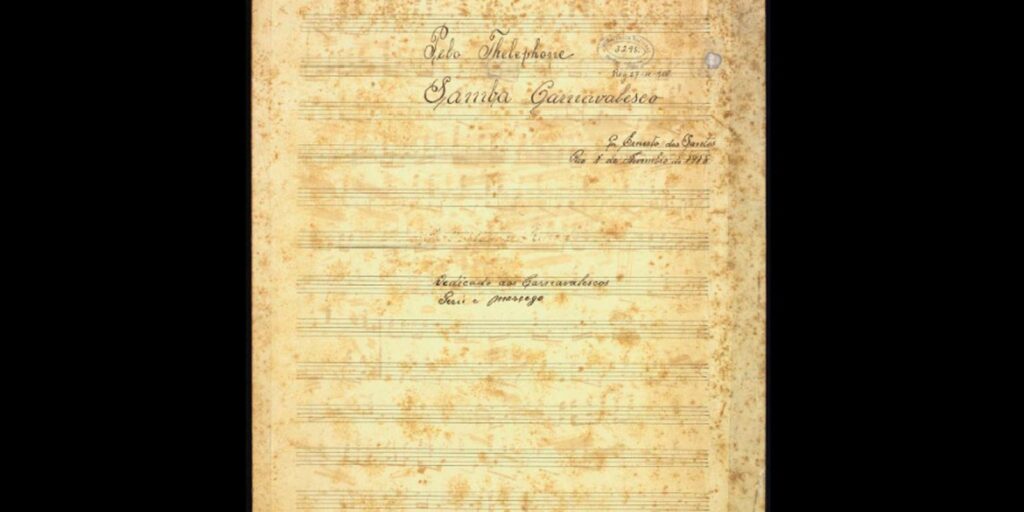 Pelo Thelephone
3295
Reg 27-11-916
Samba Carnavalesco
Ernesto dos Santos
Rio 1 de Novembro de 1916
Dedicado aos Carnavalescos
Perú e morcego